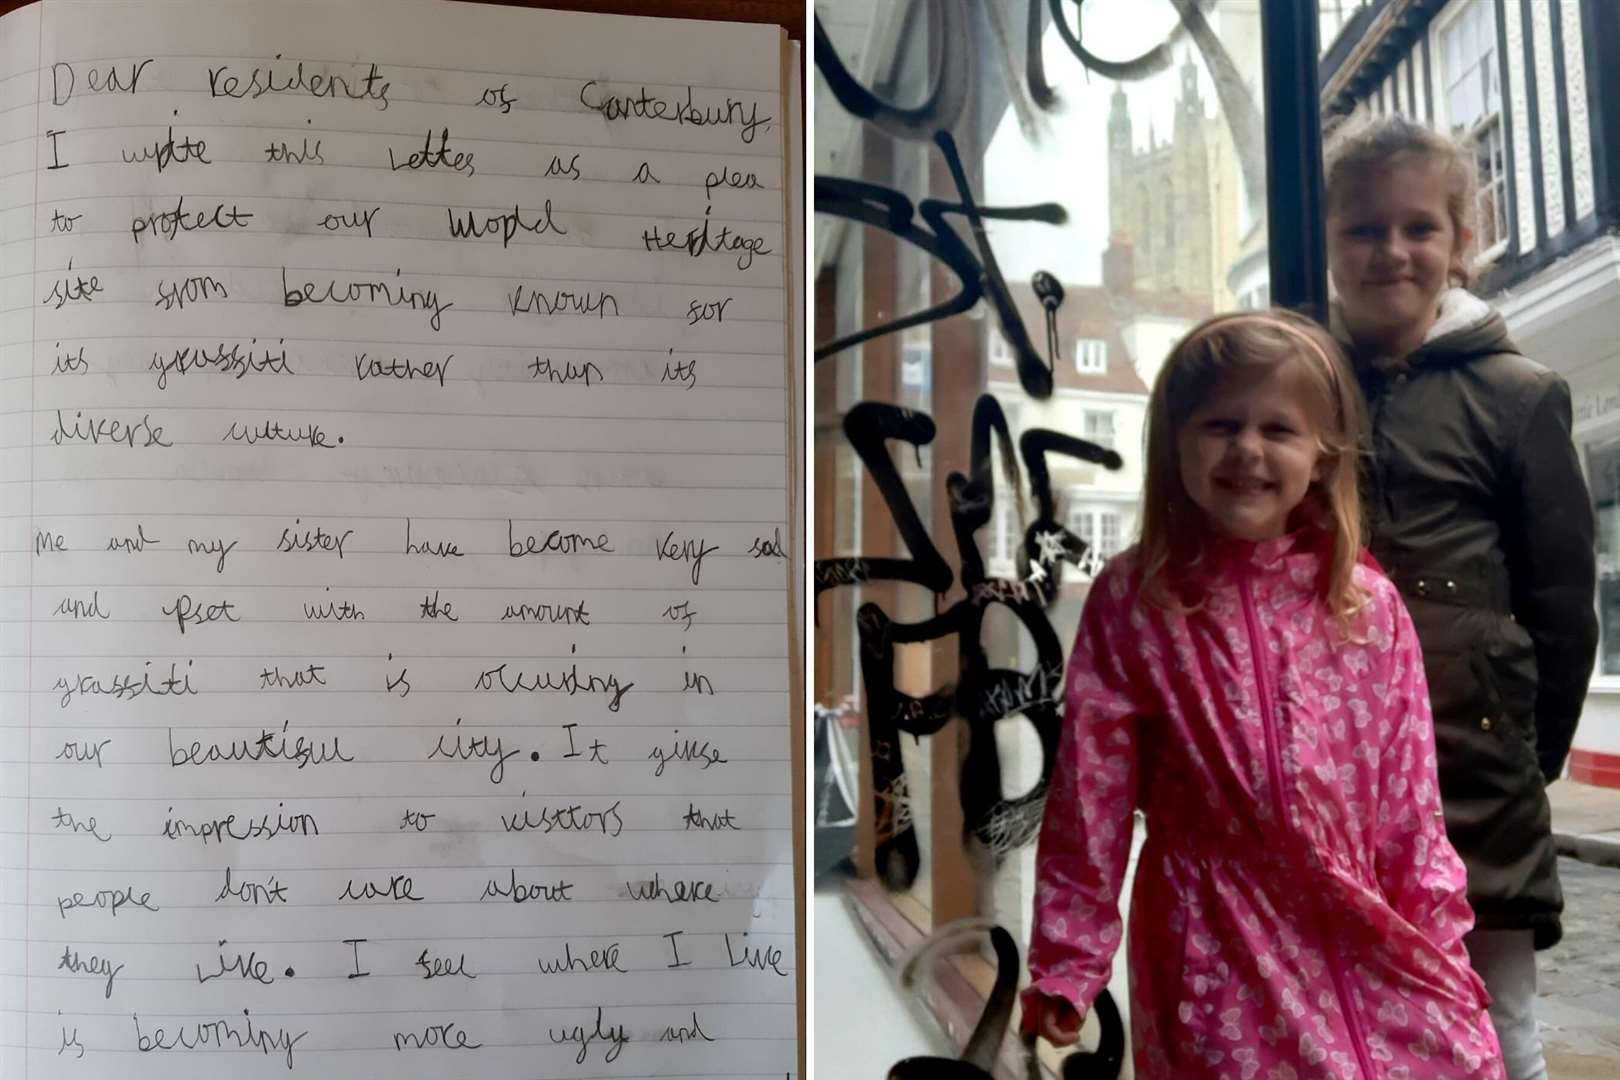 Dear residents of Canterbury,
I write this letter as a plea
to protect our World Heritage
site from becoming known for
its graffiti rather than its
diverse culture.
Me and my sister have become very sad
and upset with the amount of
graffiti that is occuring in
our beautiful city. It givse
the impression to visitors that
people don't care about where
they live. I feel where I live
is becoming more ugly and